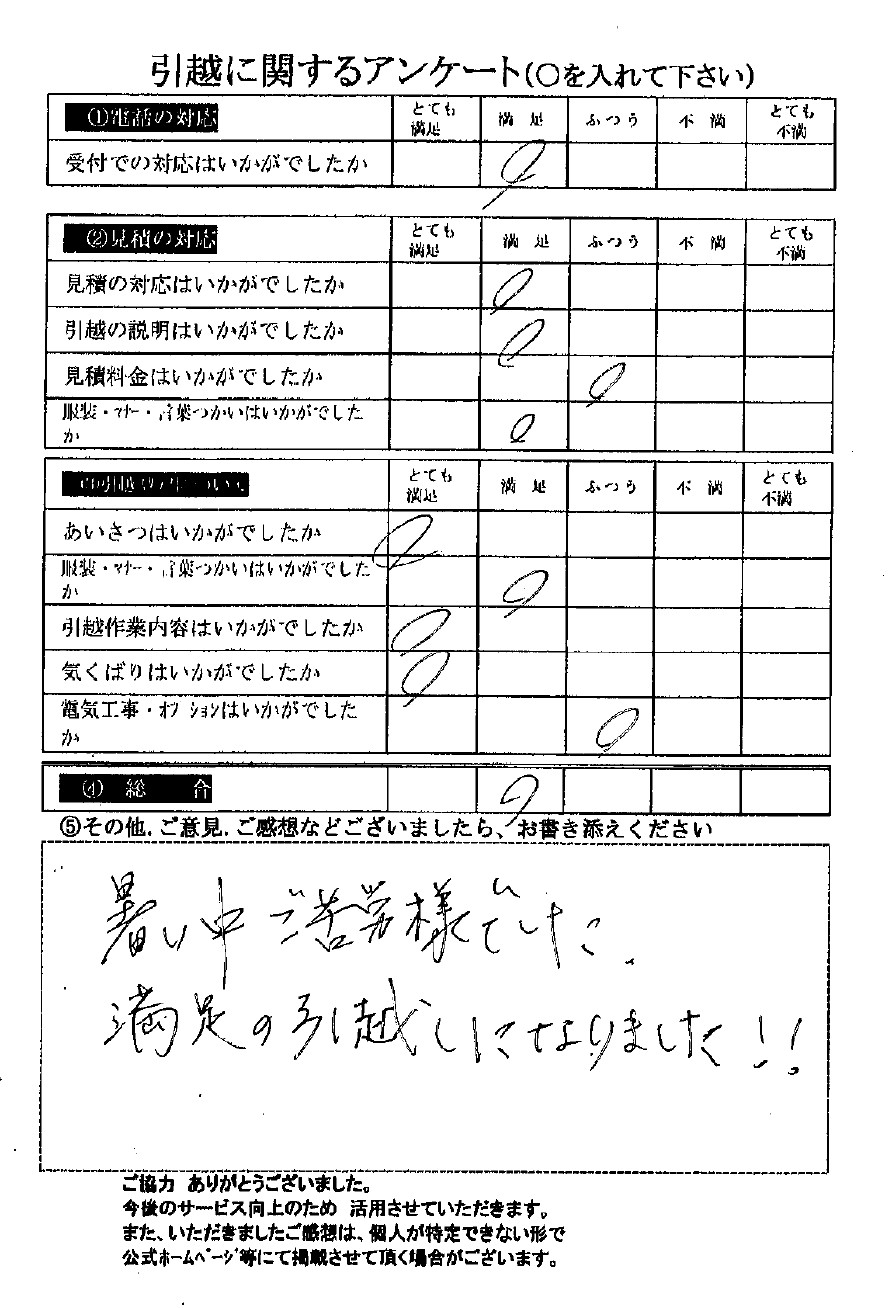 引越に関するアンケート(〇を入れて下さい)
①電話の対応 とても満足 満足 ふつう 不満 とても不満
受付での対応はいかがでしたか
②見積の対応 とても満足 満足 ふつう 不満 とても不満
見積の対応はいかがでしたか
引越の説明はいかがでしたか
見積料金はいかがでしたか
服装・マナー・言葉つかいはいかがでした
か
とても満足 満足 ふつう 不満 とても不満
あいさつはいかがでしたか
服装・マナー・言葉つかいはいかがでした
か
引越作業内容はいかがでしたか
気くばりはいかがでしたか
電気工事・オプションはいかがでした
か
④ 総 合
⑤その他、ご意見、ご感想などございましたら、お書き添えください
暑い中ご苦労様でした、
満足の引越しになりました!!
ご協力 ありがとうございました。
今後のサービス向上のため 活用させていただきます。
また、いただきましたご感想は、個人が特定できない形で
公式ホームページ等にて掲載させて頂く場合がございます。